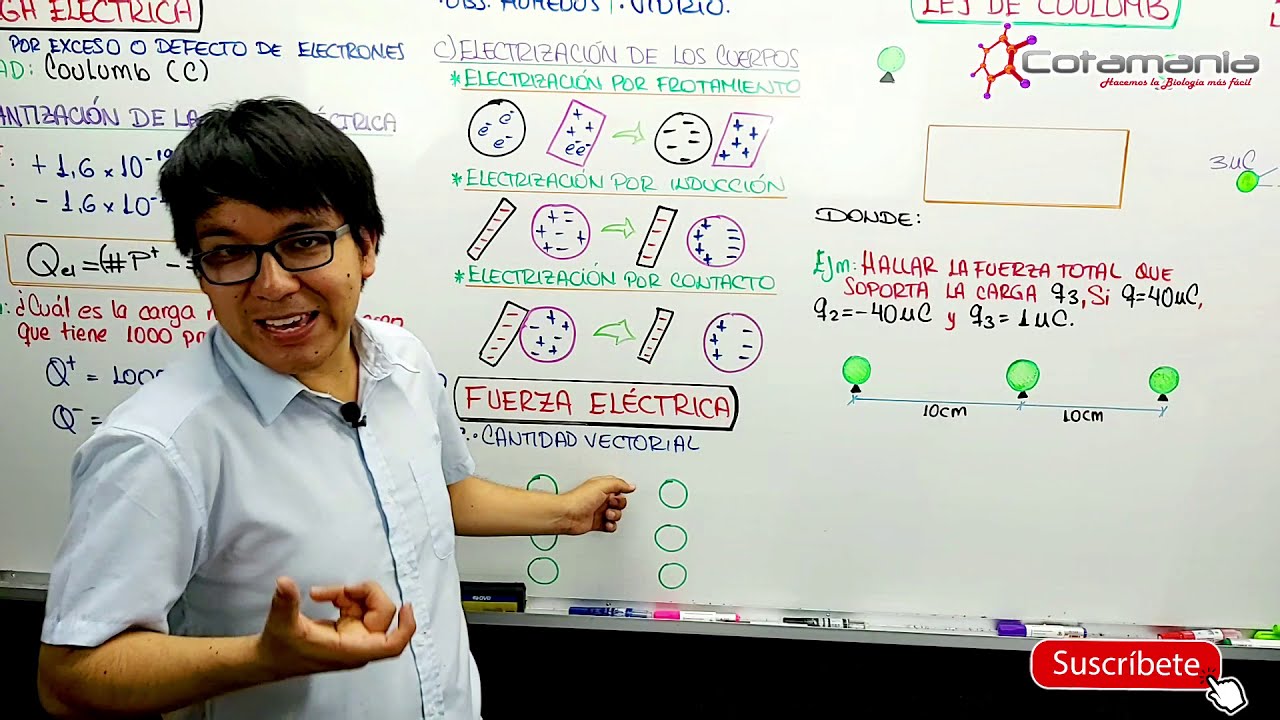 ELÉCTRICA
POR EXCESO O DEFECTO DE ELECTRONES
AD: COULUMB (C)
ANTIZACIÓN DE LA
: + 1,6 × 10⁻¹⁹
: - 1,6 × 10⁻
Qel = (#P⁺ -
¿CUÁL ES LA CARGA
QUE TIENE 1000
Q⁺ = 1000
Q⁻ =
VIDRIO.
C) ELECTRIZACIÓN DE LOS CUERPOS
* ELECTRIZACIÓN POR FROTAMIENTO
e⁻ e⁻ e⁻
+ + + + e⁻e⁻
- - - - -
+ + + + +
* ELECTRIZACIÓN POR INDUCCIÓN
* ELECTRIZACIÓN POR CONTACTO
FUERZA ELÉCTRICA
CANTIDAD VECTORIAL
LEY DE COULOMB
Cotamania
Hacemos la Biología más fácil
3µC
DONDE:
EJM: HALLAR LA FUERZA TOTAL QUE
SOPORTA LA CARGA q3, SI q=40µC,
q2=-40µC y q3=1µC.
10cm 10cm
Suscríbete